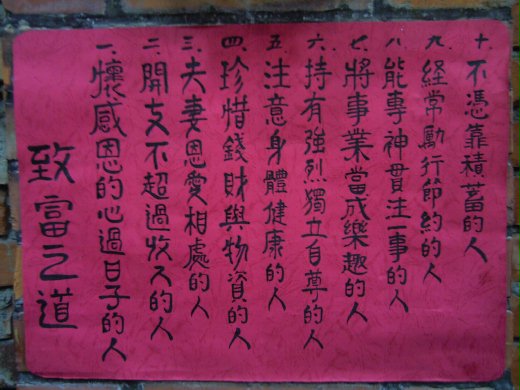 致富之道
一.懷感恩的心過日子的人
二.開支不超過收入的人
三.夫妻恩愛相處的人
四.珍惜錢財與物資的人
五.注意身體健康的人
六.持有強烈獨立自尊的人
七.將事業當成樂趣的人
八.能專神貫注一事的人
九.経常勵行節約的人
十.不憑靠積蓄的人